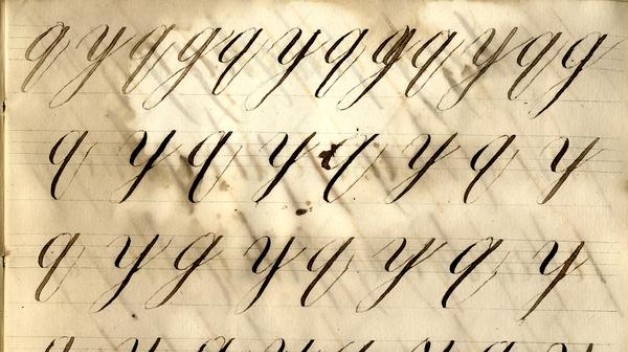 q y q g q y q g q y q g
q y q y q y q y
q y g y q y q y